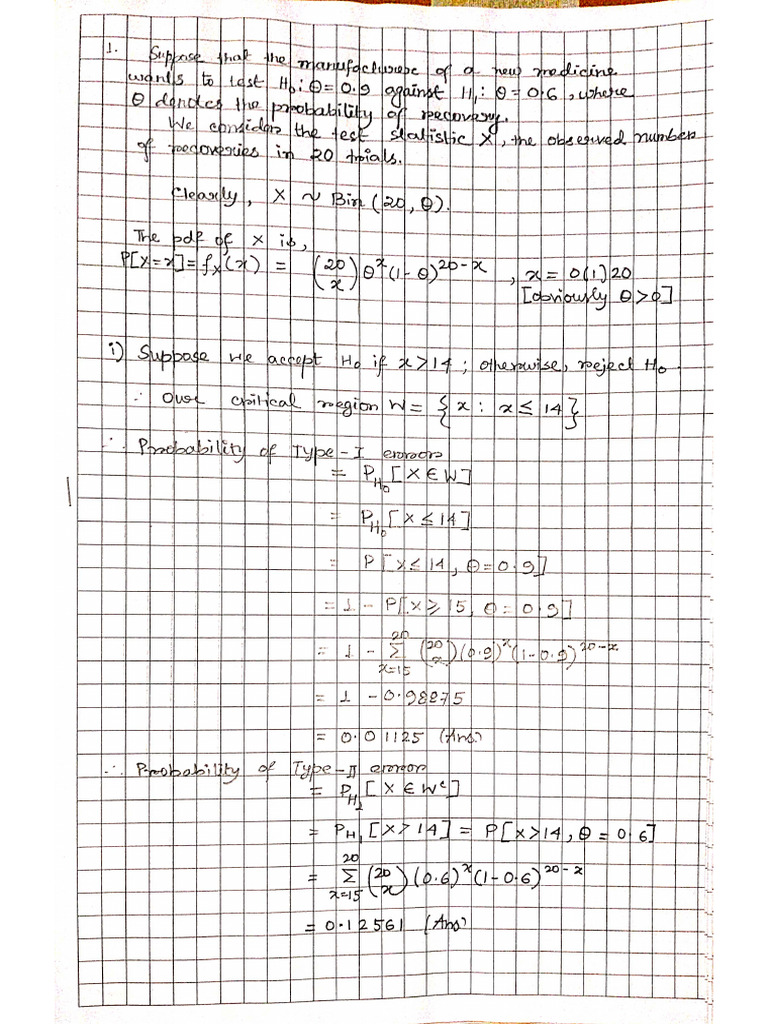 1. Suppose that the manufacturer of a new medicine
wants to test H₀: θ = 0.9 against H₁: θ = 0.6, where
θ denotes the probability of recovery.
We consider the test statistic X, the observed number
of recoveries in 20 trials.
Clearly, X ~ Bin (20, θ).
The pdf of X is,
P[X=x] = fₓ(x) = (20 x) θ^x (1-θ)^20-x , x = 0(1)20
[obviously θ > 0]
i) Suppose we accept H₀ if x > 14 ; otherwise, reject H₀.
∴ Our critical region W = {x : x ≤ 14}
∴ Probability of Type-I error
= P_H₀ [X ∈ W]
= P_H₀ [X ≤ 14]
= P [X ≤ 14, θ = 0.9]
= 1 - P[X ≥ 15, θ = 0.9]
= 1 - Σ_{x=15}^{20} (20 x) (0.9)^x (1-0.9)^20-x
= 1 - 0.98875
= 0.01125 (Ans)
∴ Probability of Type-II error
= P_H₁ [X ∈ W^c]
= P_H₁ [X > 14] = P[X > 14, θ = 0.6]
= Σ_{x=15}^{20} (20 x) (0.6)^x (1-0.6)^20-x
= 0.12561 (Ans)